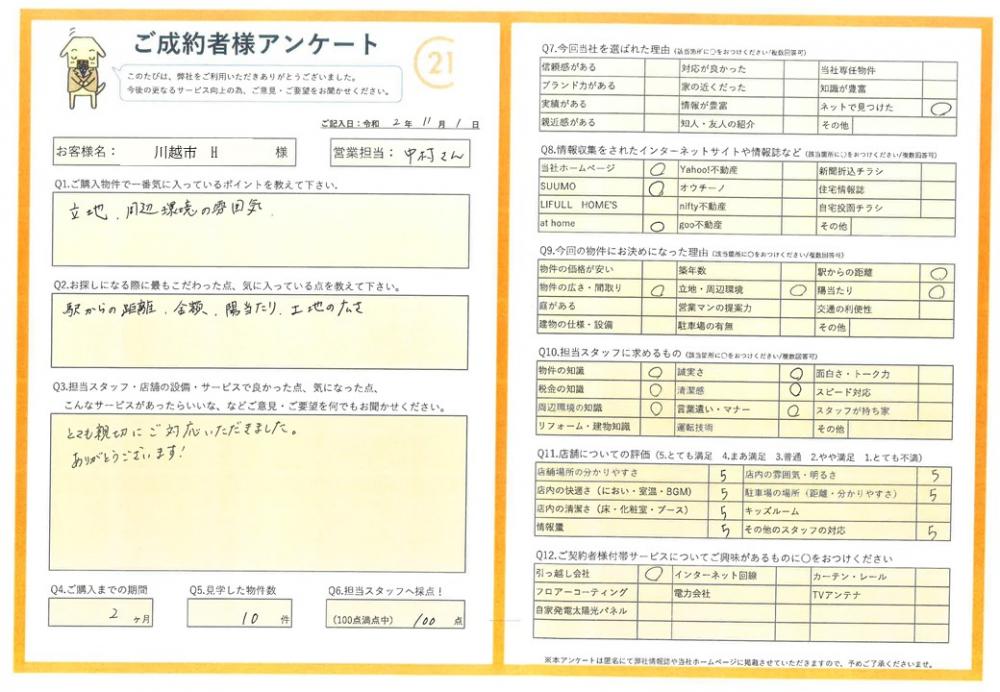 ご成約者様アンケート
21
このたびは、弊社をご利用いただきありがとうございました。
今後の更なるサービス向上の為、ご意見・ご要望をお聞かせください。
ご記入日：令和 2 年 11 月 1 日
お客様名： 川越市 H 様
営業担当： 中村さん
Q1.ご購入物件で一番気に入っているポイントを教えて下さい。
立地、周辺環境の雰囲気、
Q2.お探しになる際に最もこだわった点、気に入っている点を教えて下さい。
駅からの距離、金額、陽当たり、土地の広さ
Q3.担当スタッフ・店舗の設備・サービスで良かった点、気になった点、
こんなサービスがあったらいいな、などご意見・ご要望を何でもお聞かせください。
とても親切にご対応いただきました。
ありがとうございます！
Q4.ご購入までの期間
2 ヶ月
Q5.見学した物件数
10 件
Q6.担当スタッフへ採点！
(100点満点中) 100 点
Q7.今回当社を選ばれた理由（該当箇所に○をおつけください/複数回答可）
信頼感がある 対応が良かった 当社専任物件
ブランド力がある 家の近くだった 知識が豊富
実績がある 情報が豊富 ネットで見つけた ○
親近感がある 知人・友人の紹介 その他
Q8.情報収集をされたインターネットサイトや情報誌など（該当箇所に○をおつけください/複数回答可）
当社ホームページ ○ Yahoo!不動産 新聞折込チラシ
SUUMO ○ オウチーノ 住宅情報誌
LIFULL HOME'S nifty不動産 自宅投函チラシ
at home ○ goo不動産 その他
Q9.今回の物件にお決めになった理由（該当箇所に○をおつけください/複数回答可）
物件の価格が安い 築年数 駅からの距離 ○
物件の広さ・間取り ○ 立地・周辺環境 ○ 陽当たり ○
庭がある 営業マンの提案力 交通の利便性
建物の仕様・設備 駐車場の有無 その他
Q10.担当スタッフに求めるもの（該当箇所に○をおつけください/複数回答可）
物件の知識 ○ 誠実さ ○ 面白さ・トーク力
税金の知識 ○ 清潔感 ○ スピード対応
周辺環境の知識 ○ 言葉遣い・マナー ○ スタッフが持ち家
リフォーム・建物知識 運転技術 その他
Q11.店舗についての評価（5.とても満足 4.まあ満足 3.普通 2.やや満足 1.とても不満）
店舗場所の分かりやすさ 5 店内の雰囲気・明るさ 5
店内の快適さ（におい・室温・BGM） 5 駐車場の場所（距離・分かりやすさ） 5
店内の清潔さ（床・化粧室・ブース） 5 キッズルーム
情報量 5 その他のスタッフの対応 5
Q12.ご契約者様付帯サービスについてご興味があるものに○をおつけください
引っ越し会社 ○ インターネット回線 カーテン・レール
フロアーコーティング 電力会社 TVアンテナ
自家発電太陽光パネル
※本アンケートは匿名にて弊社情報誌や当社ホームページに掲載させていただきますので、予めご了承くださいませ。